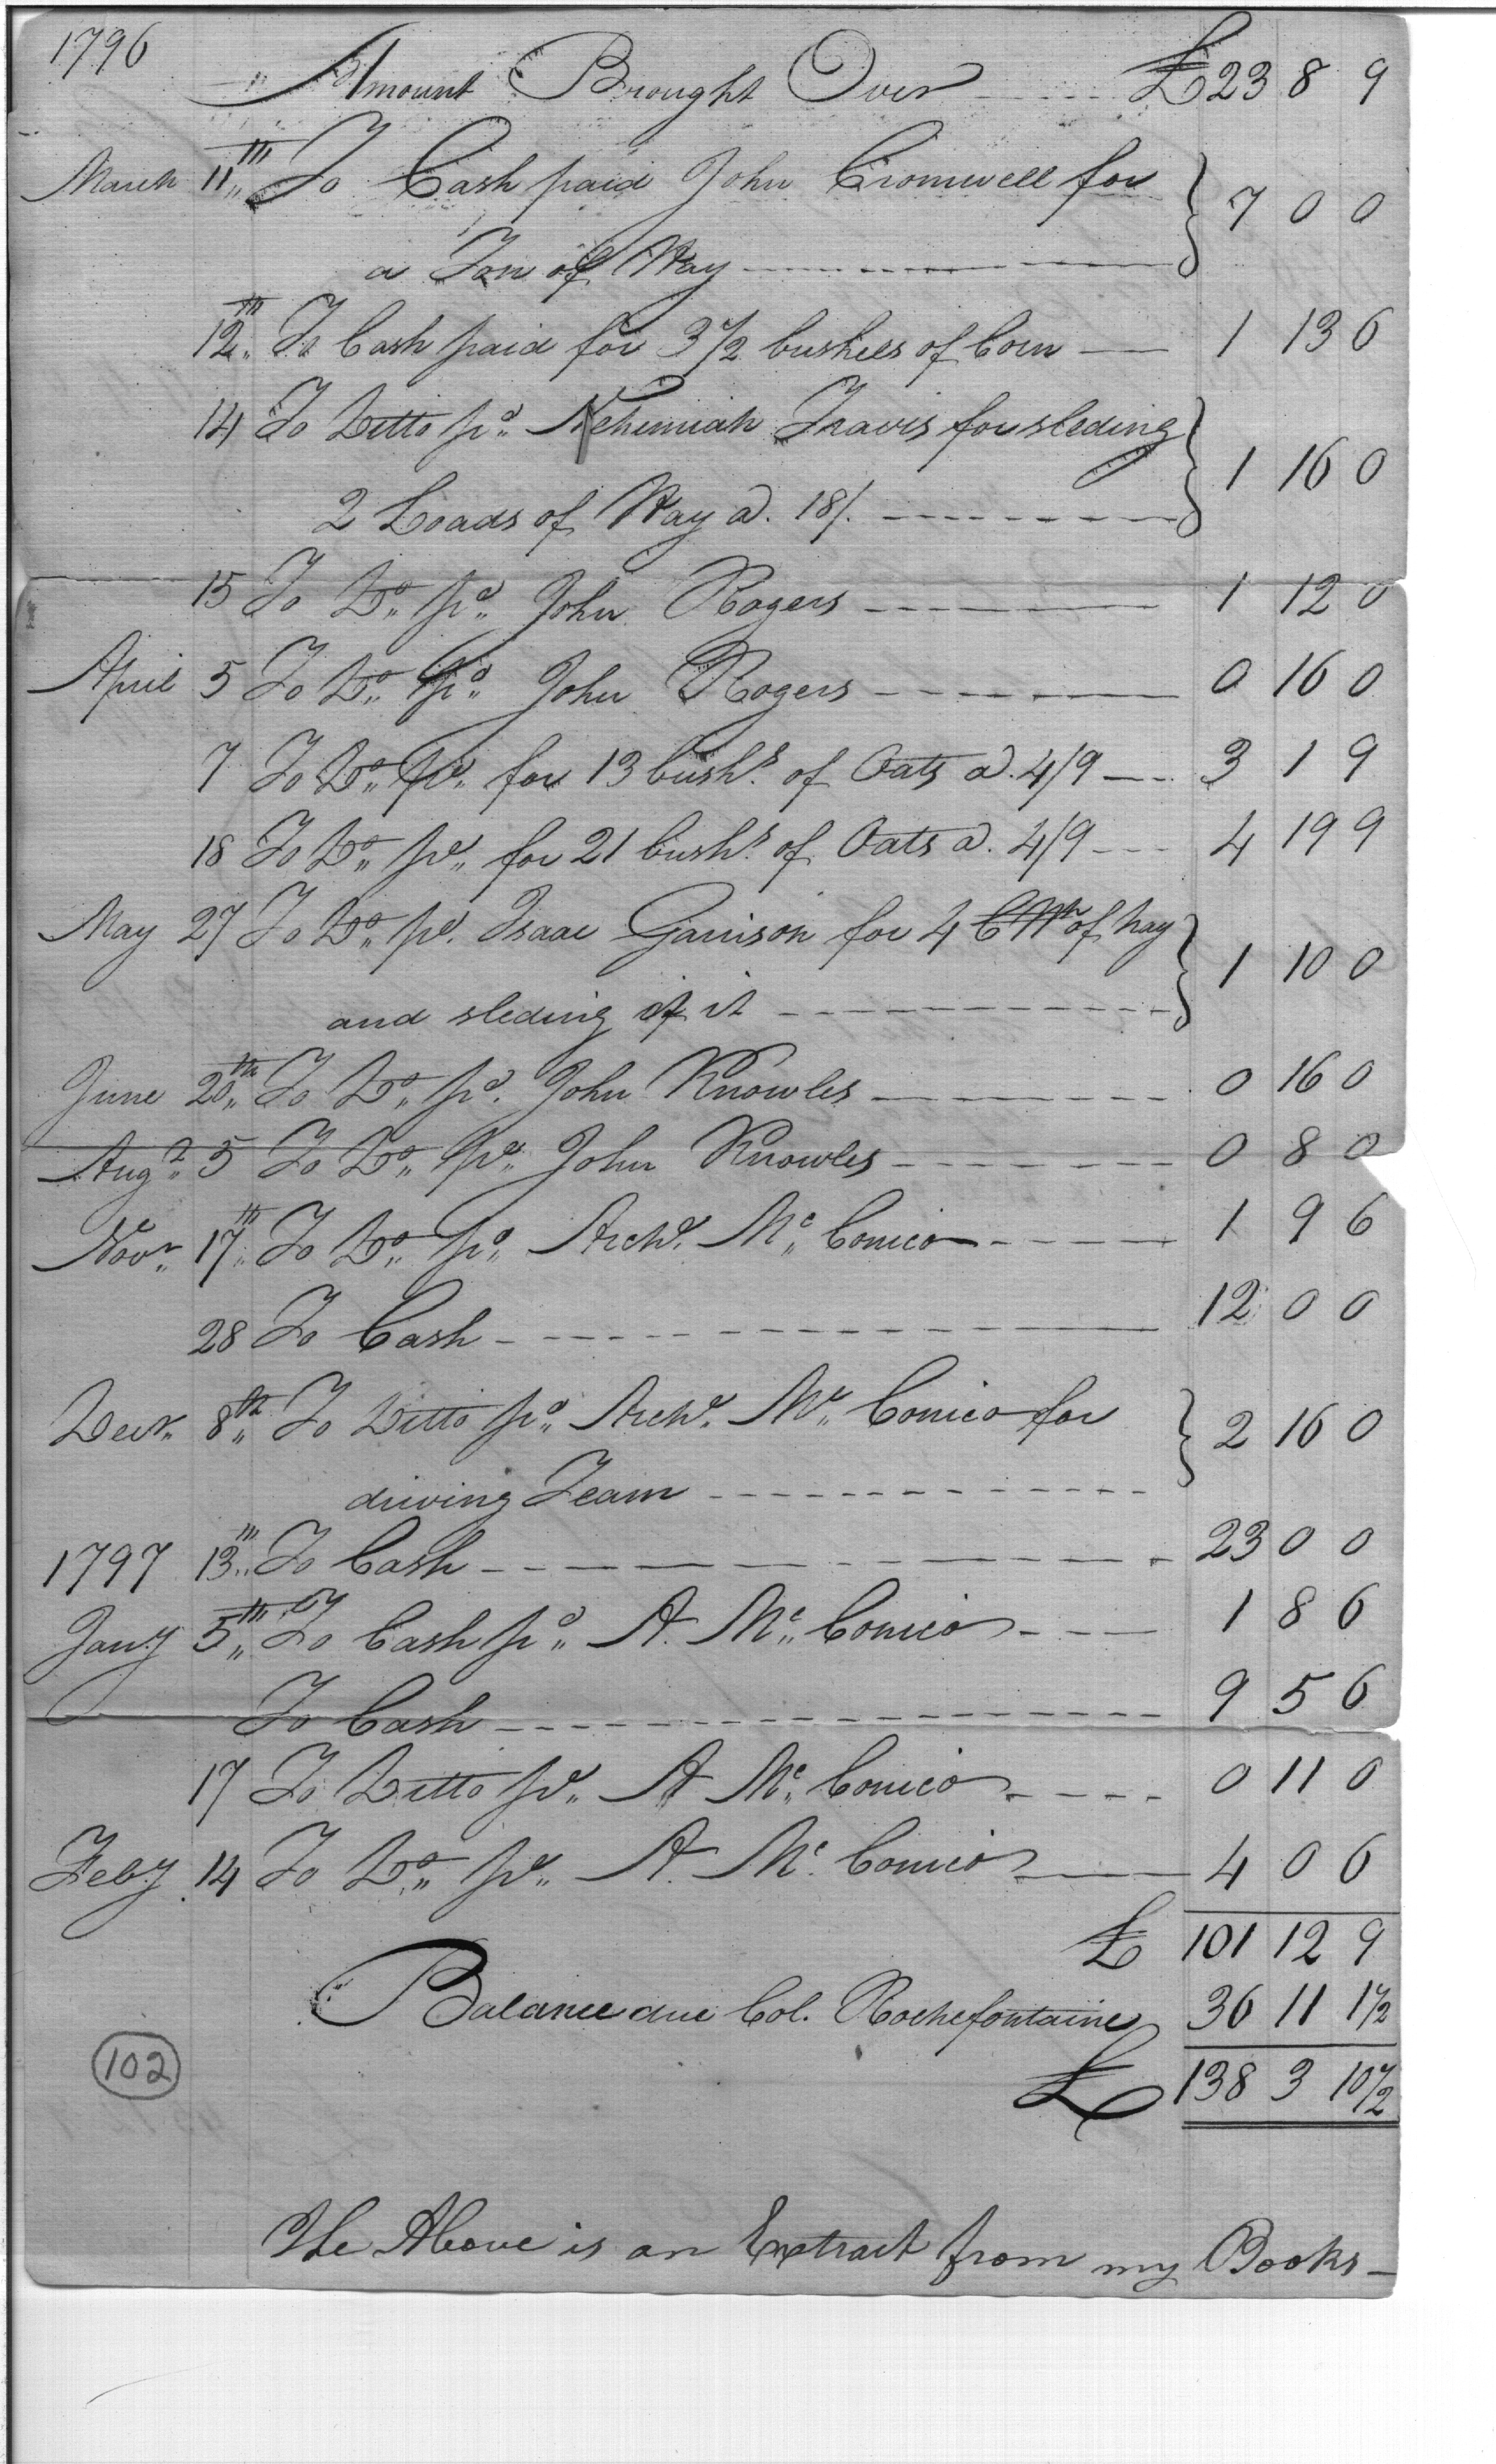 1796
Amount Brought Over £23 8 9
March 11th To Cash paid John Cromwell for
a Ton of Hay 7 0 0
12th To Cash paid for 3 1/2 bushels of Corn 1 13 6
14 To Ditto pd Nehimiah Travis for sleding
2 Loads of Hay @. 18/. 1 16 0
15 To Do pd John Rogers 1 12 0
April 5 To Do pd John Rogers 0 16 0
7 To Do pd for 13 bushs of Oats @. 4/9 3 1 9
18 To Do pd for 21 bushs of Oats @. 4/9 4 19 9
May 27 To Do pd. Isaac Garrison for 4 of hay
and sleding of it 1 10 0
June 20th To Do pd. John Knowles 0 16 0
Augt 5 To Do pd John Knowles 0 8 0
Novr 17th To Do pd Archd. Mc Comico 1 9 6
28 To Cash 12 0 0
Decr 8th To Ditto pd Archd. Mc Comico for
driving Team 2 16 0
13th To Cash 23 0 0
1797
Jany 5th To Cash pd A. Mc Comico 1 8 6
To Cash 9 5 6
17 To Ditto pd A Mc Comico 0 11 0
Feby 14 To Do pd A. Mc Comico 4 0 6
£ 101 12 9
Balance due Col. Rochefontaine 36 11 1 1/2
£ 138 3 10 1/2
102
The Above is an Extract from my Books